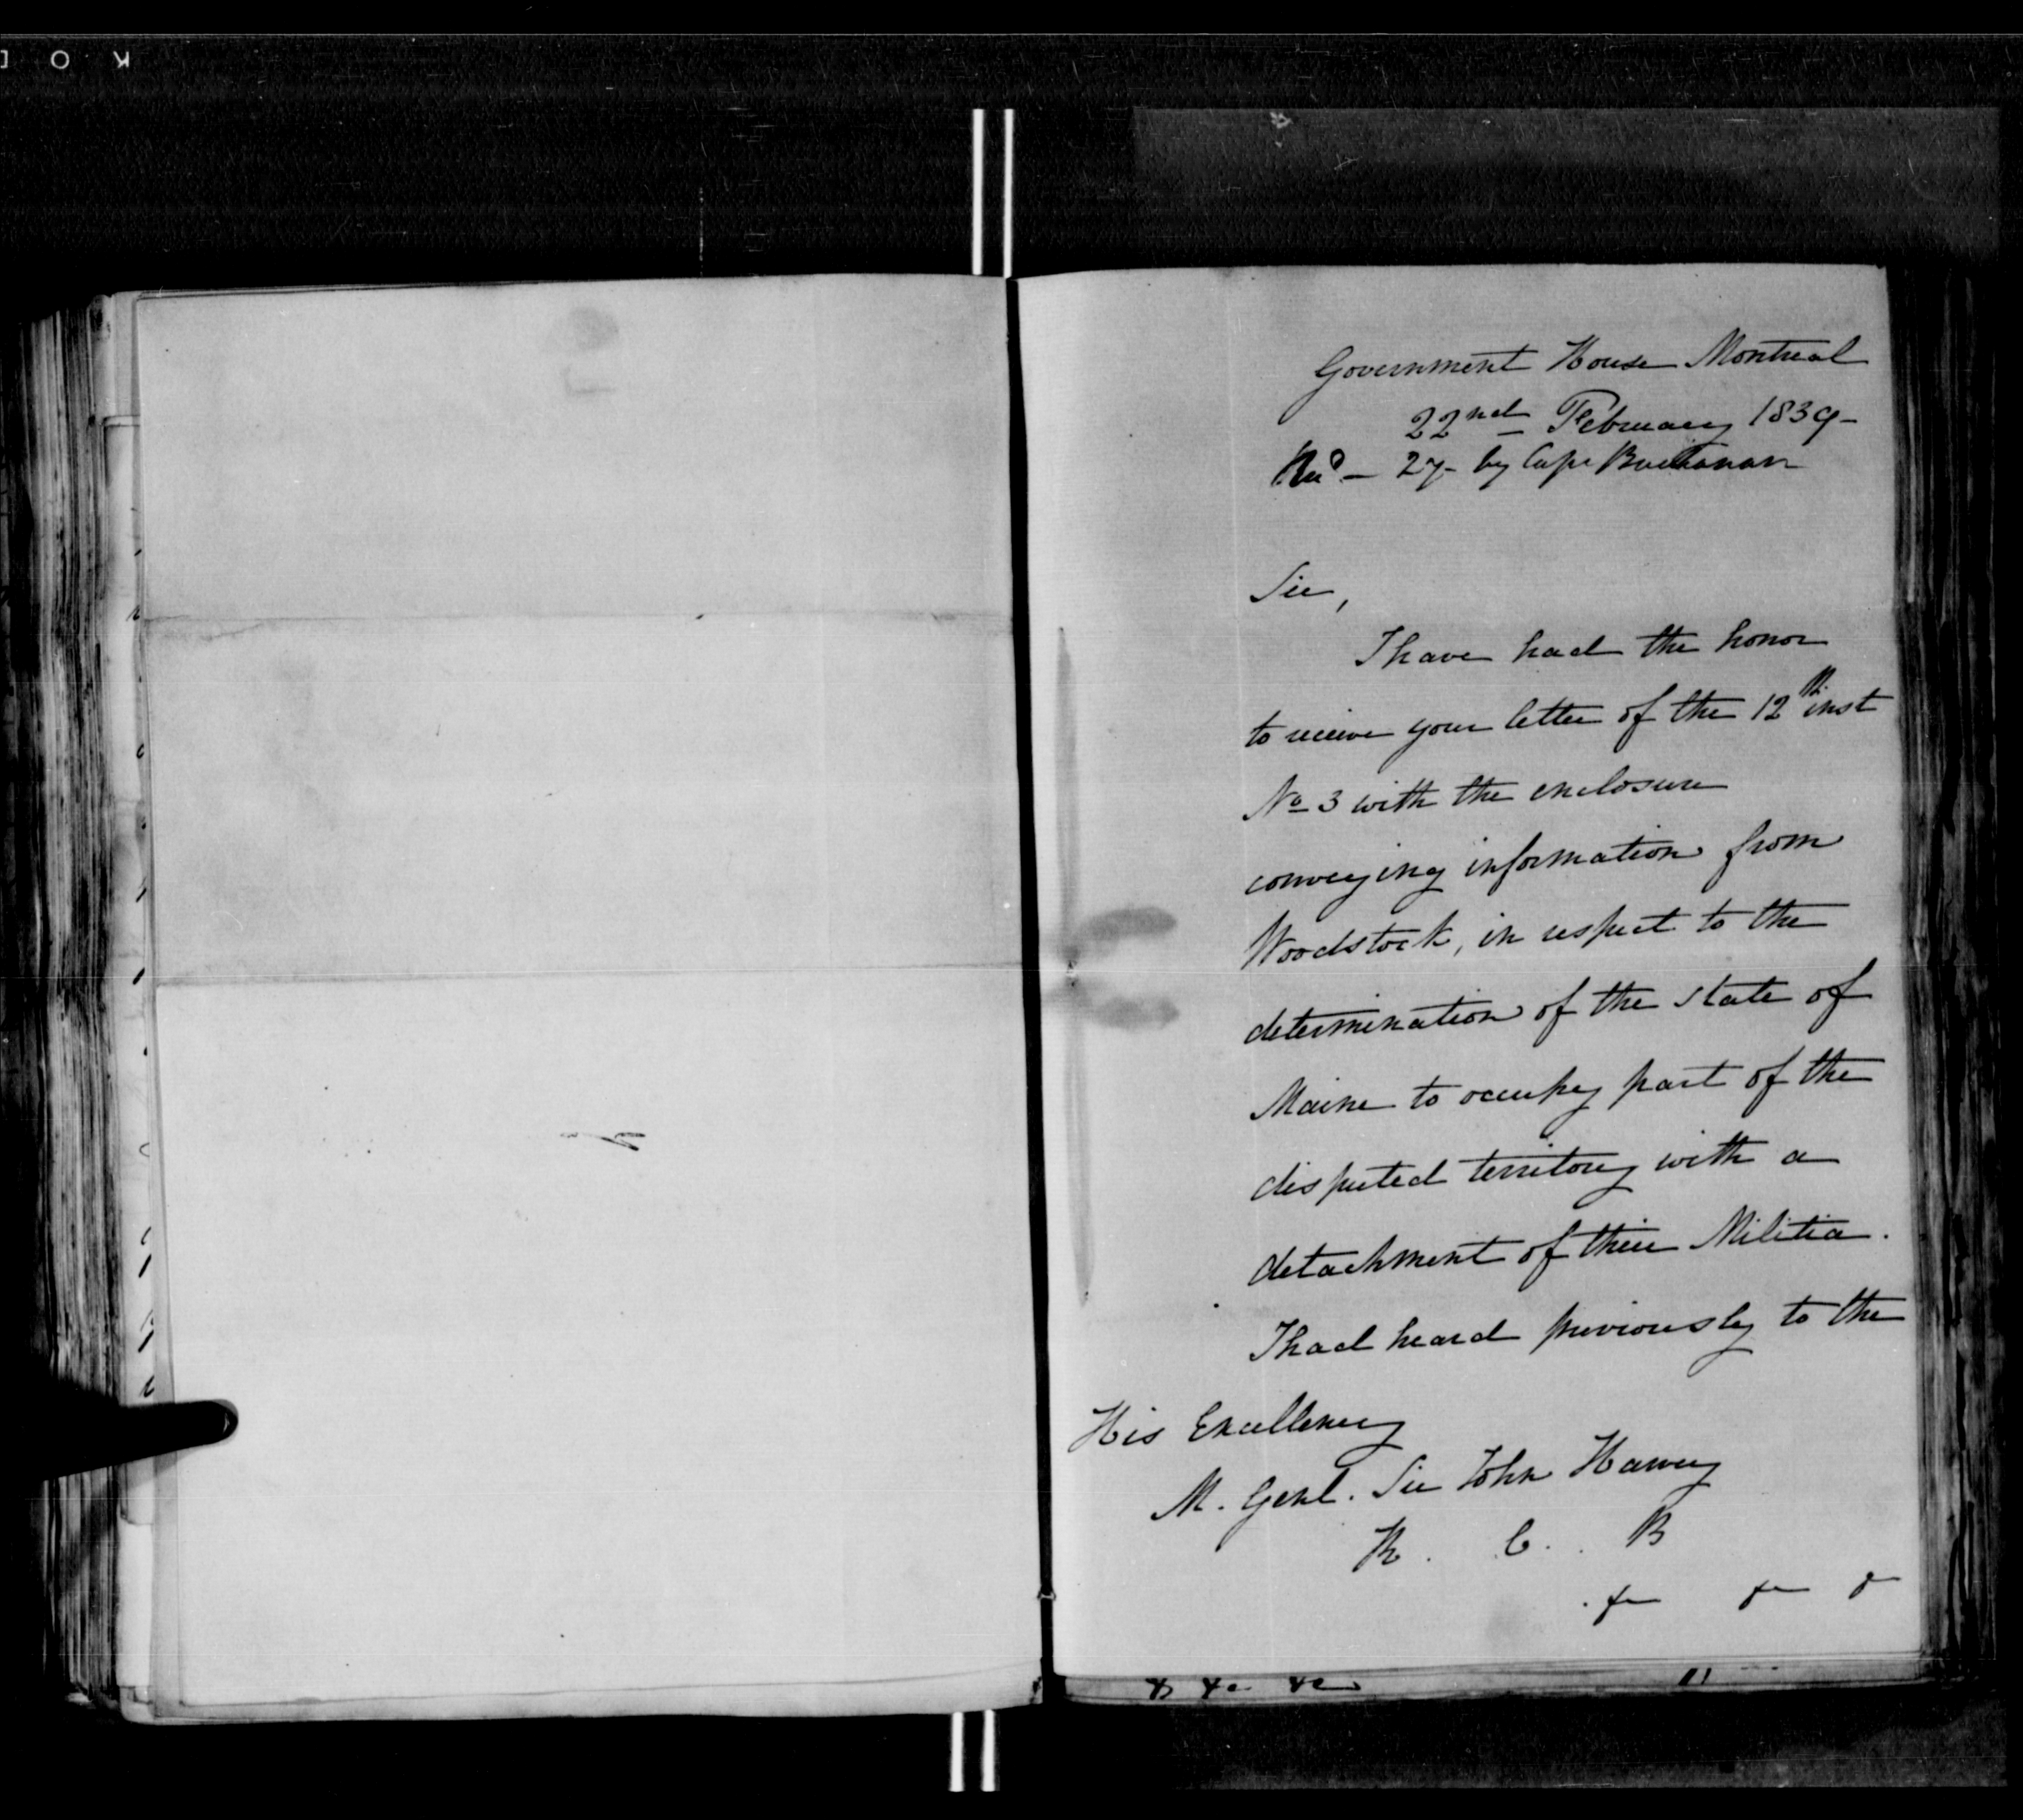 Government House Montreal
22nd February 1839-
Recd - 27- by Capt Buchanan
Sir,
I have had the honor
to receive your letter of the 12th inst
No 3 with the enclosure
conveying information from
Woodstock, in respect to the
determination of the state of
Maine to occupy part of the
disputed territory with a
detachment of their Militia.
I had heard previously to the
His Excellency
M. Genl. Sir John Harvey
K. C. B